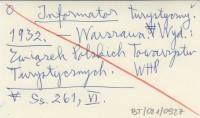 Informator turystyczny.
1932. – Warszawa. Wyd.:
Związek Polskich Towarzystw
Turystycznych. WHP
Ss. 261, VI.
BJ/CE1/0927